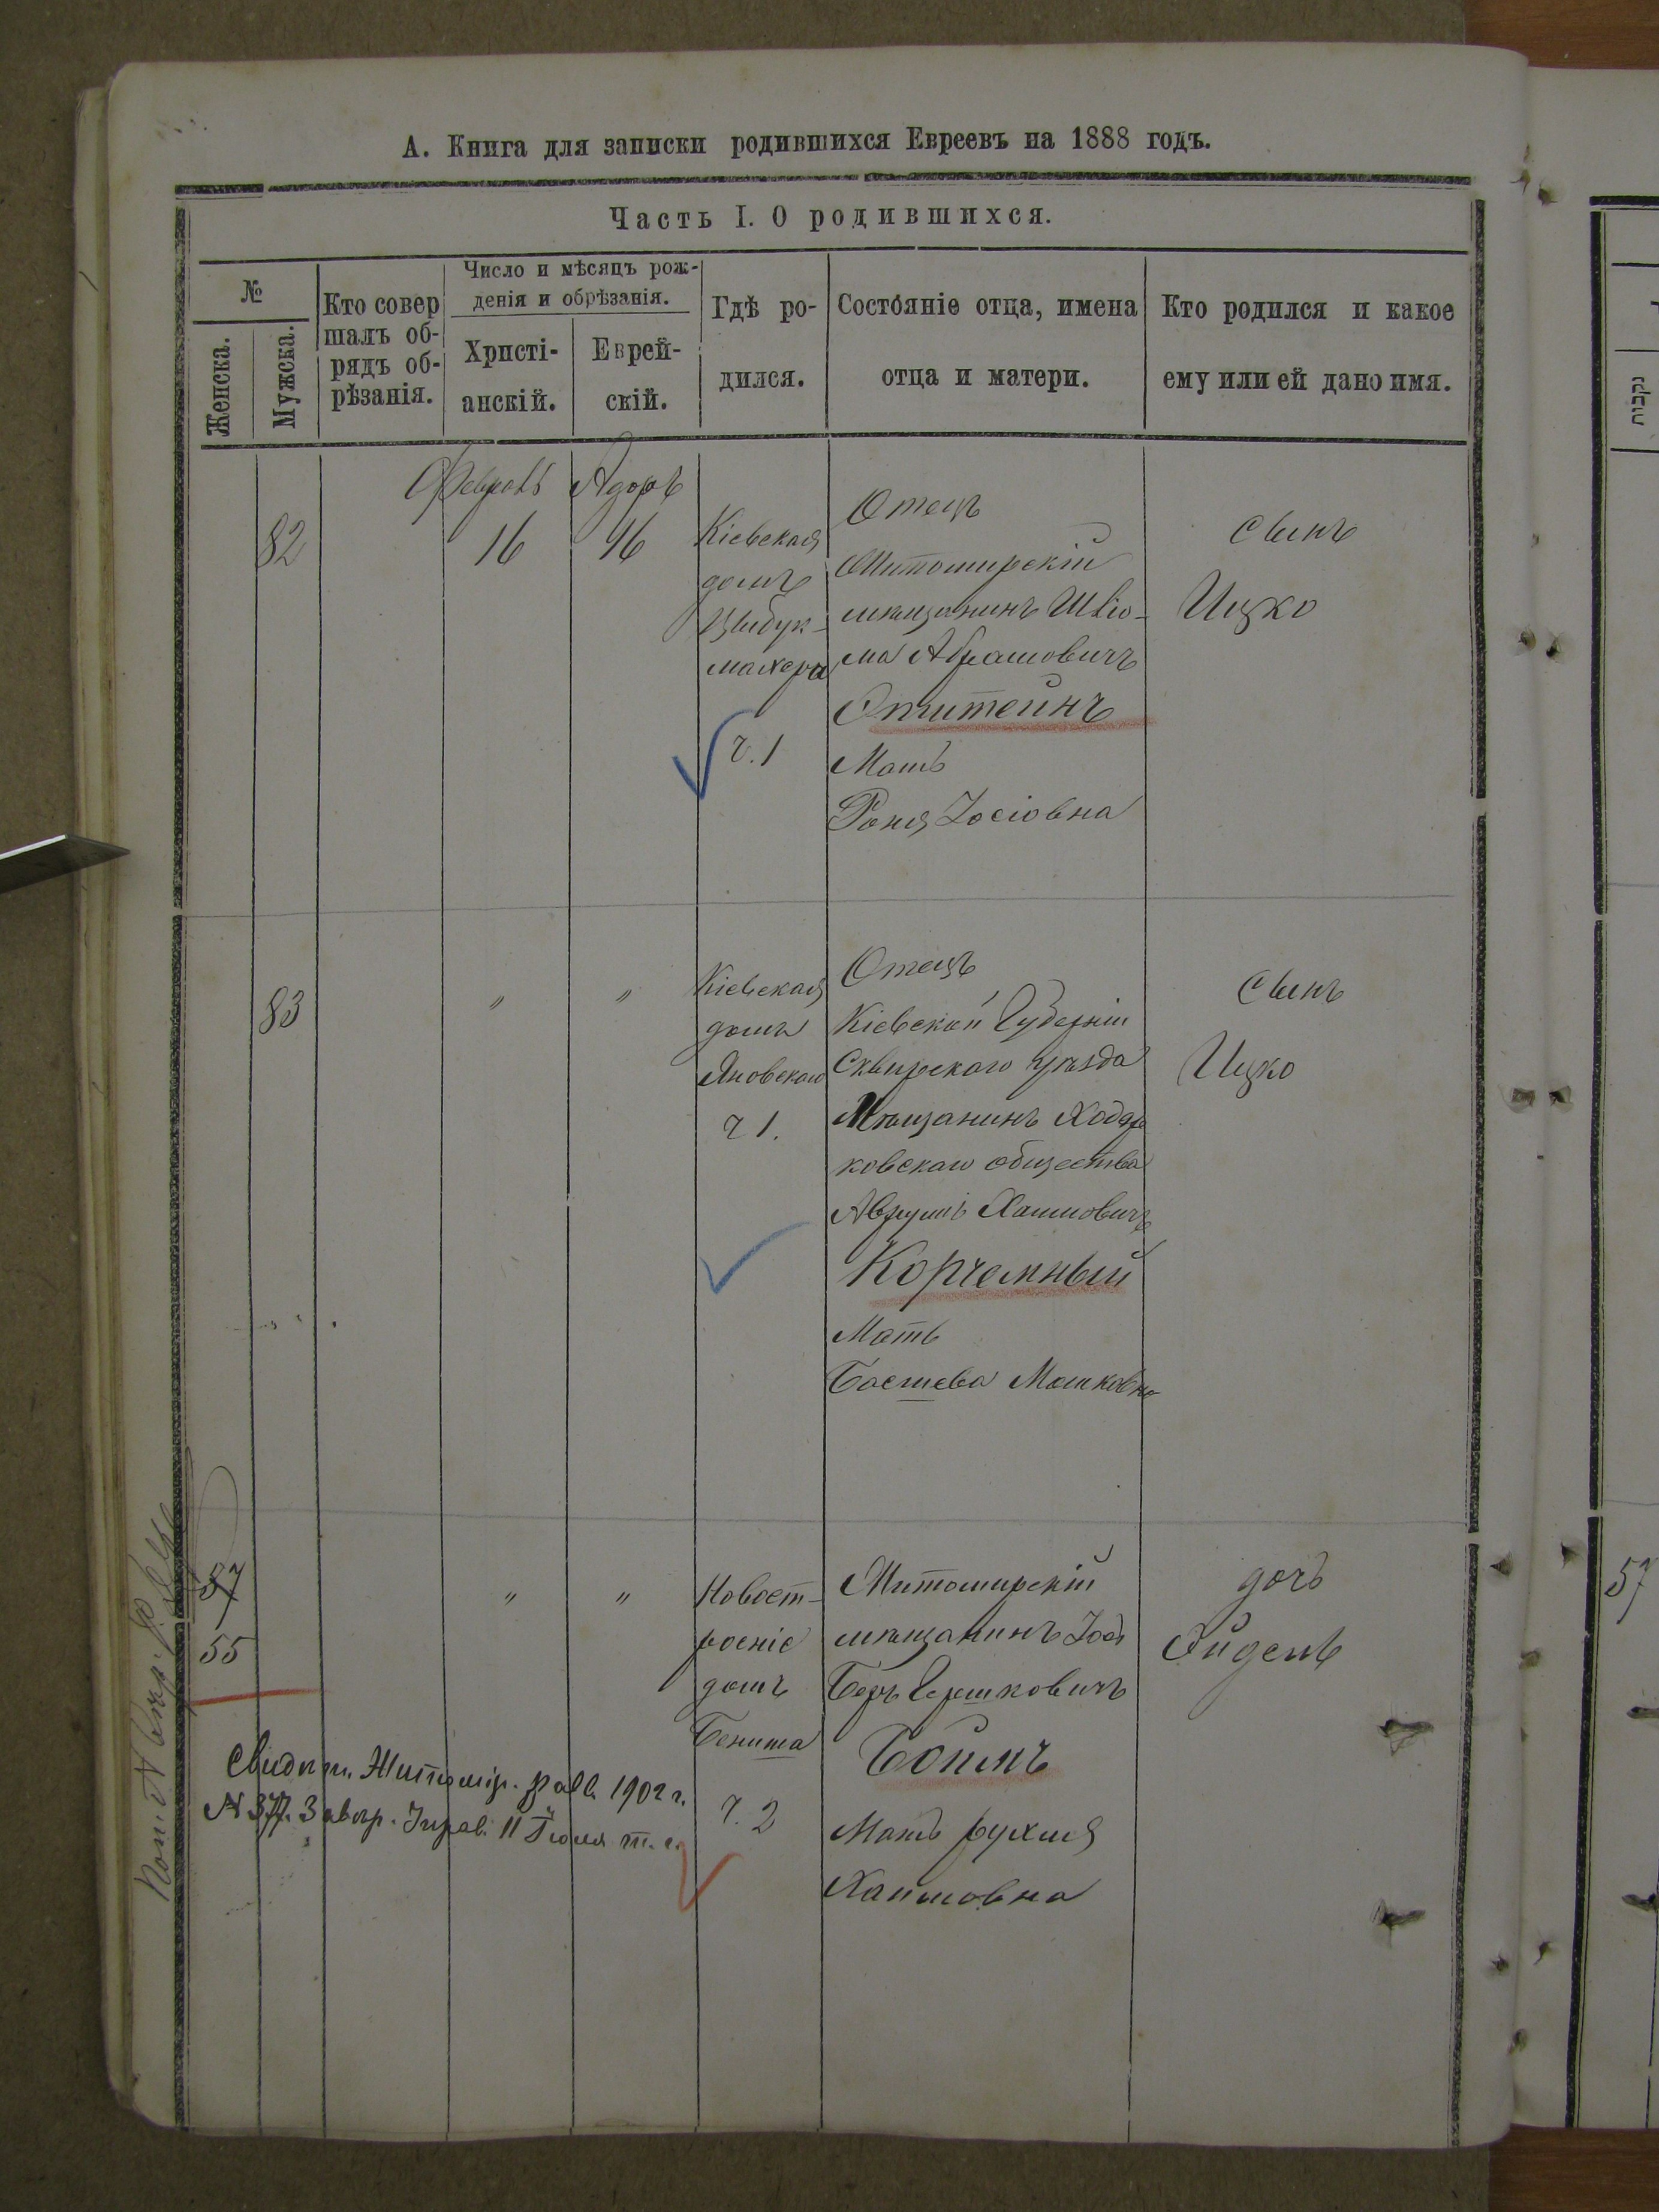 А. Книга для записки родившихся Евреевъ на 1888 годъ.
Часть I. О родившихся.
№
Женска.
Мужска.
Кто совер
шалъ об-
рядъ об-
рѣзанія.
Число и мѣсяцъ рож-
денія и обрѣзанія.
Христі-
анскій.
Еврей-
скій.
Гдѣ ро-
дился.
Состояніе отца, имена
отца и матери.
Кто родился и какое
ему или ей дано имя.
82
Февраль
16
Адоръ
16
Кіевская
домъ
Цыбук-
махера
ч. 1
Отецъ
Житомирскій
мѣщанинъ Шліо-
ма Абрамовичъ
Эпштейнъ
Мать
Раня Іосіовна
сынъ
Ицко
83
"
"
Кіевская
домъ
Яновскаго
ч 1.
Отецъ
Кіевской Губерніи
Сквирскаго уѣзда
Мѣщанинъ Ходор
ковскаго общества
Аврумъ Хаимовичъ
Корчемный
Мать
Басшева Мошковна
сынъ
Ицко
57
55
"
"
Новост-
роеніе
домъ
Бенита
ч. 2
Житомирскій
мѣщанинъ Іось
Беръ Гершковичъ
Боймъ
Мать Рухля
Хаимовна
дочь
Эйдель
Свидѣт. Житомір. равв. 1902 г.
№ 377. Завѣр. Управ. 11 Іюля т. г.
נקבות
57